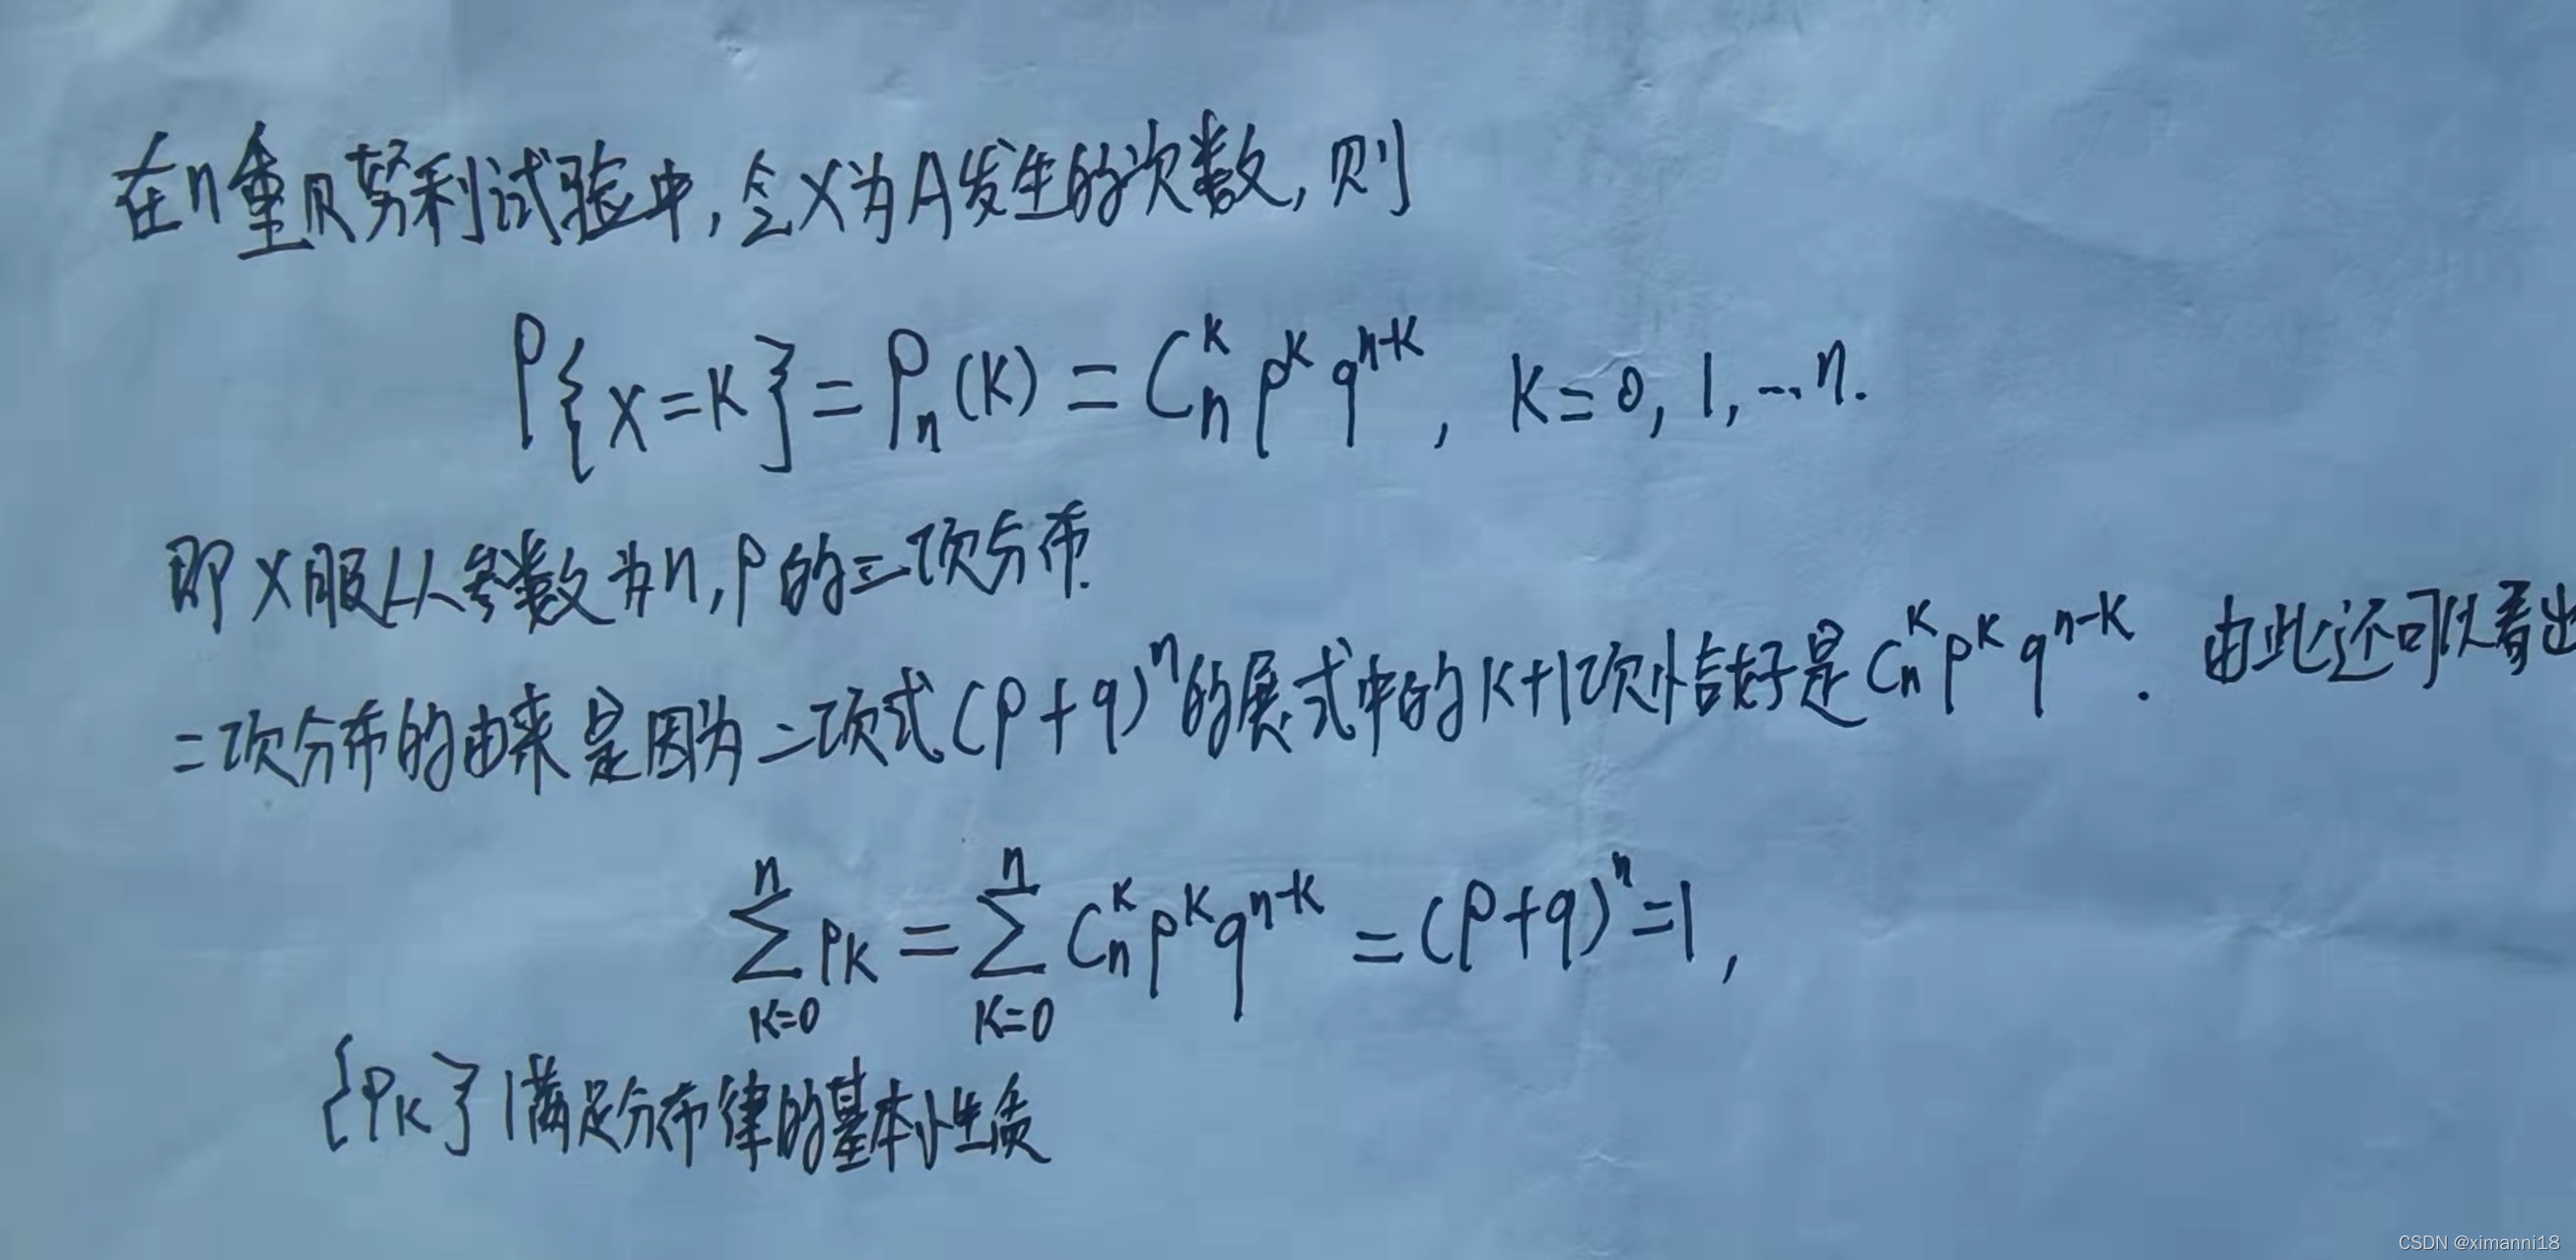 在n重贝努利试验中,令X为A发生的次数,则
P{X=K}=Pn(K)=C_n^K p^K q^{n-K}, K=0,1,…n.
即X服从参数为n,p的二项分布.
二项分布的由来是因为二项式(p+q)^n的展式中的K+1项恰好是C_n^K p^K q^{n-K}. 由此还可以看出
\sum_{K=0}^{n} P_K = \sum_{K=0}^{n} C_n^K p^K q^{n-K} = (p+q)^n = 1,
{P_K}满足分布律的基本性质
CSDN @ximanni18